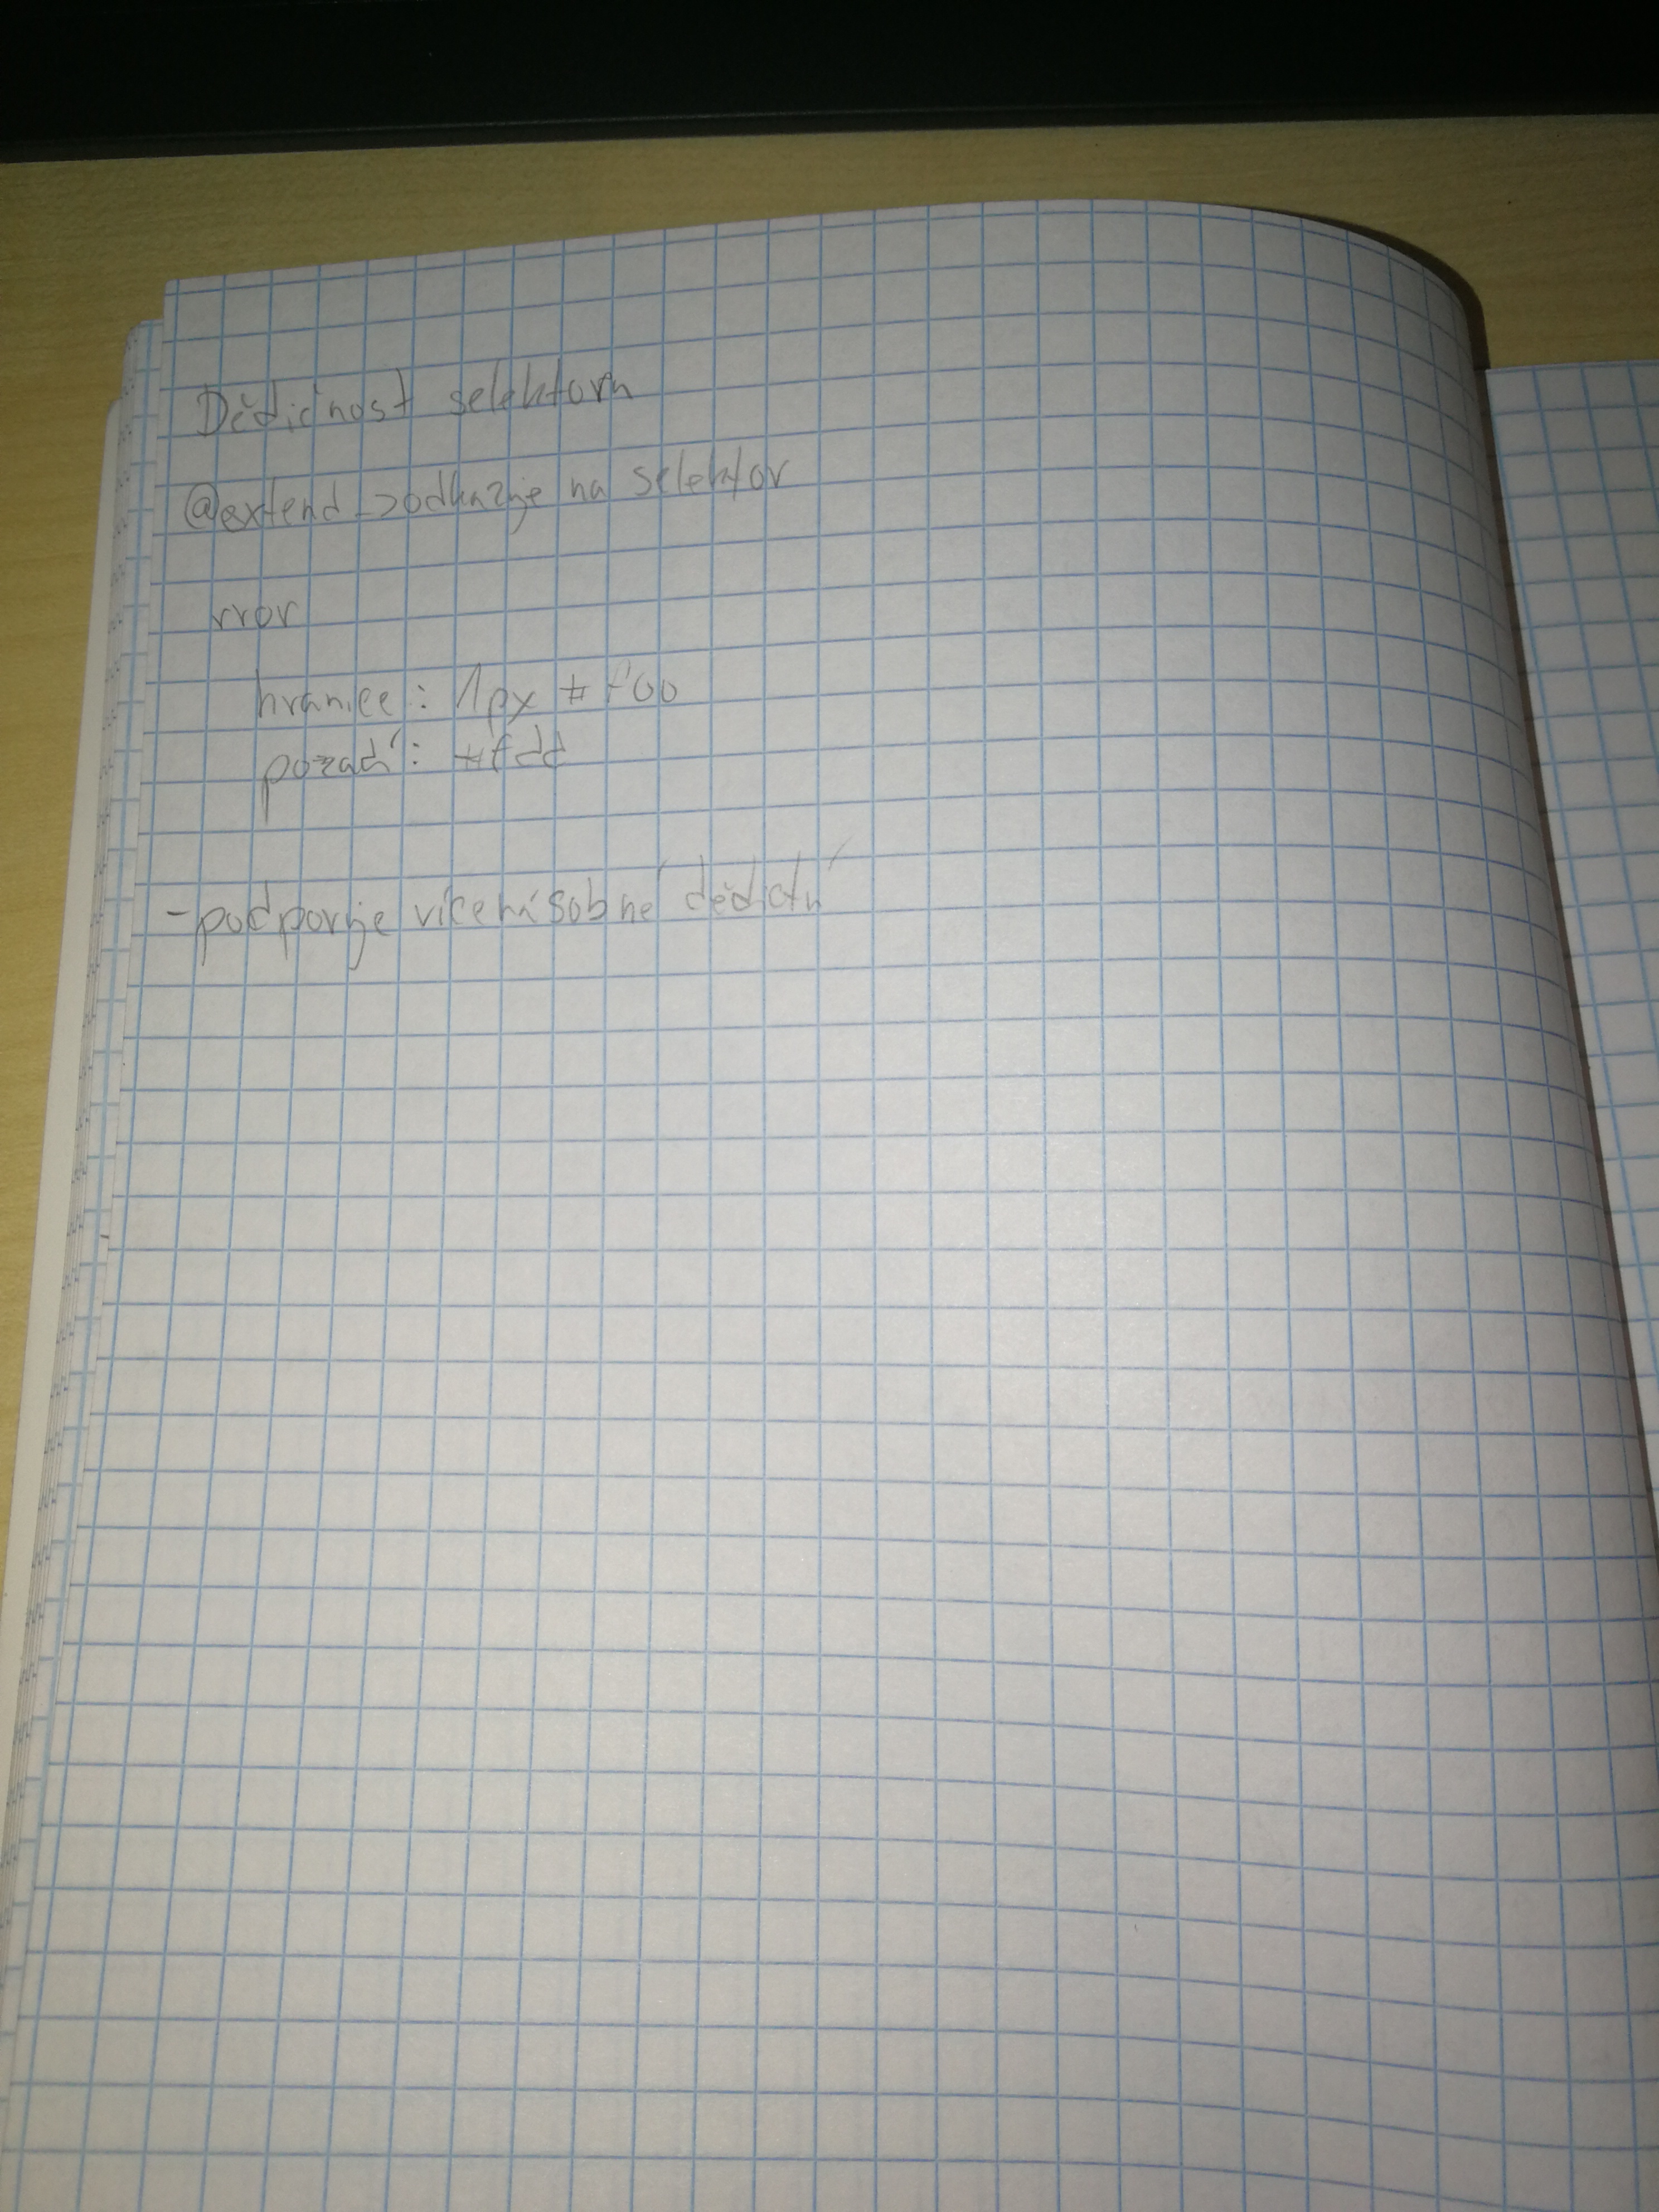 Dědičnost selektorů
@extend -> odkazuje na selektor
rror
hranice: 1px #f00
pozadí: #fdd
- podporuje vícenásobné dědictví